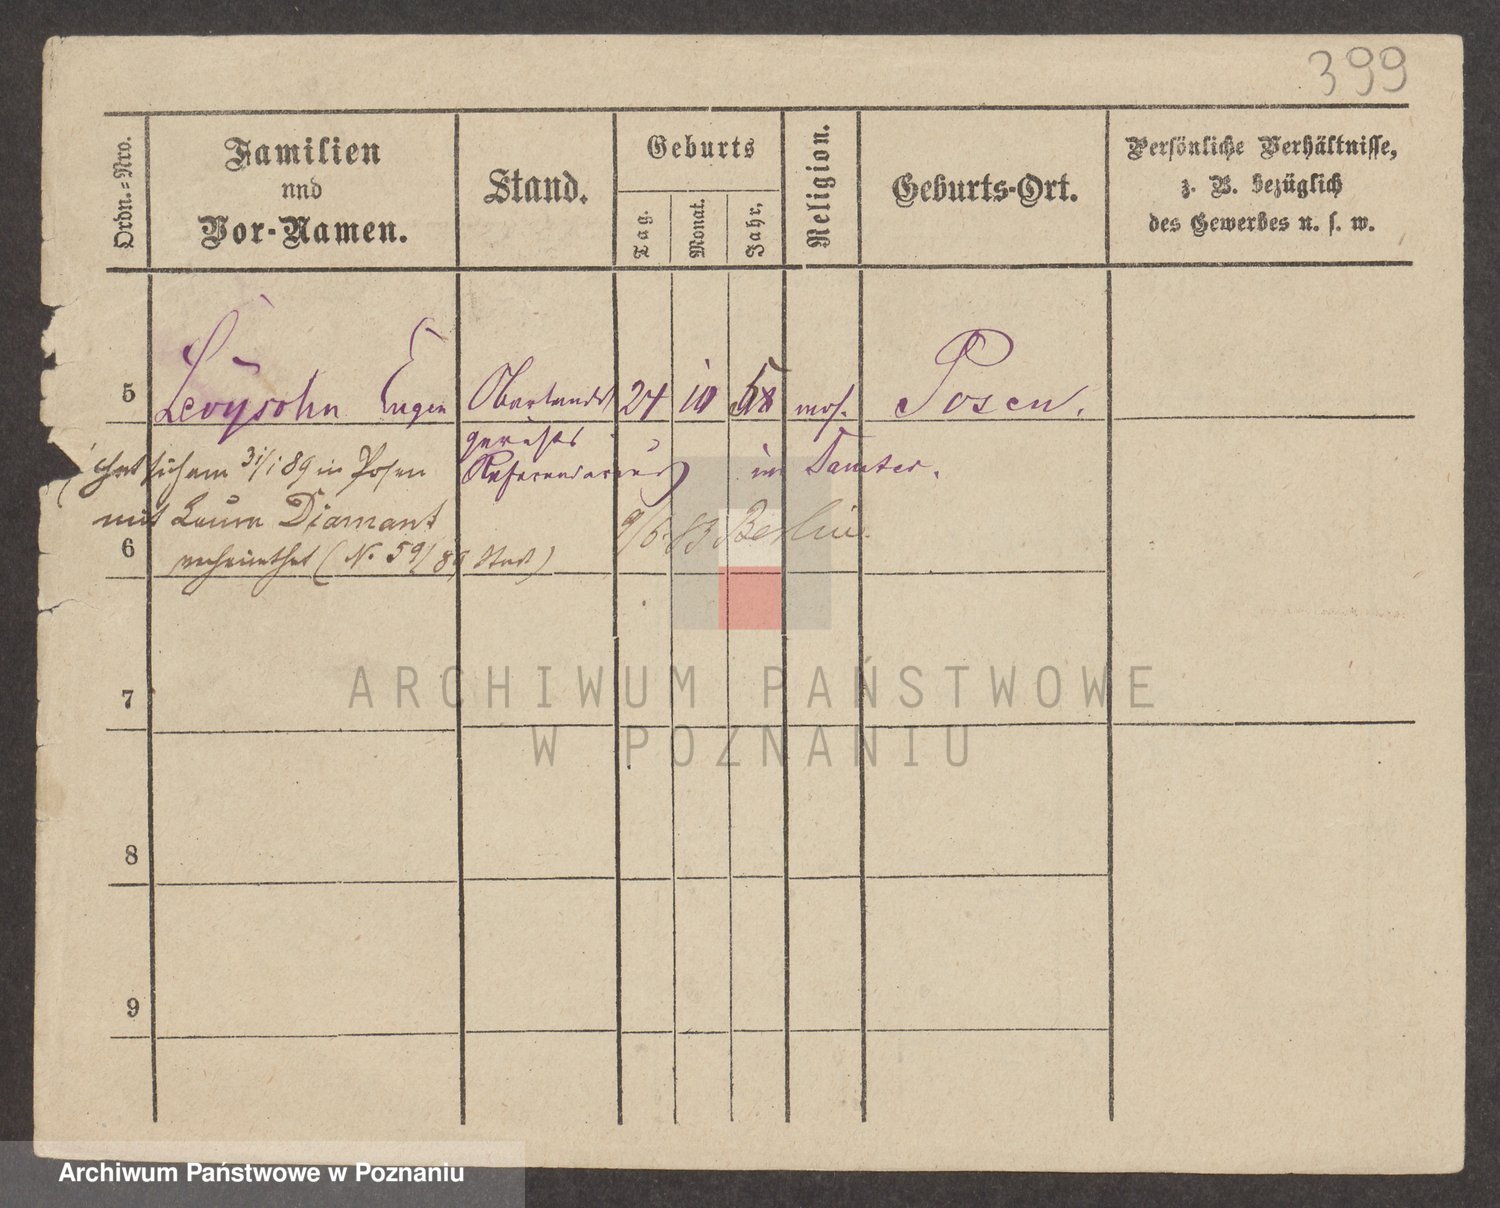 399
Ordn.=Nro.
Familien
und
Vor-Namen.
Stand.
Geburts
Tag.
Monat.
Jahr.
Religion.
Geburts-Ort.
Persönliche Verhältnisse,
z. B. bezüglich
des Gewerbes u. s. w.
5 Levysohn Eugen Oberlandes 24 10 58 mos. Posen.
gerichts
Referendar in Samter.
hat sich am 31/1 89 in Posen
mit Laura Diamant
9/6 83 Berlin.
6 verheirathet (N. 59/89 Stad)
7
8
9
ARCHIWUM PAŃSTWOWE
W POZNANIU
Archiwum Państwowe w Poznaniu